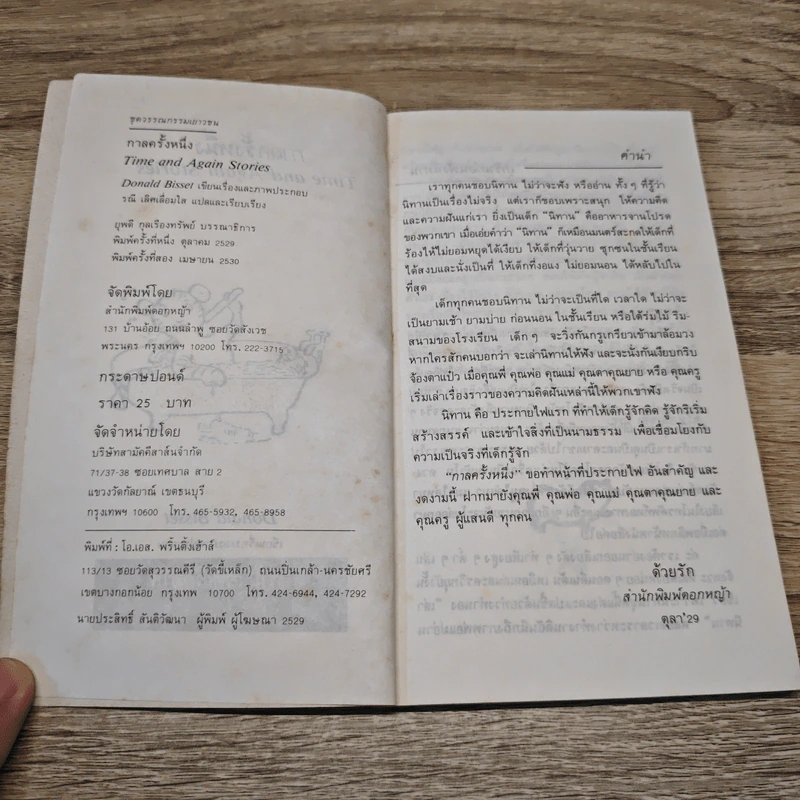 ชุดวรรณกรรมเยาวชน
กาลครั้งหนึ่ง
Time and Again Stories
Donald Bisset เขียนเรื่องและภาพประกอบ
รณี เลิศเลื่อมใส แปลและเรียบเรียง
ยุพดี กุลเรืองทรัพย์ บรรณาธิการ
พิมพ์ครั้งที่หนึ่ง ตุลาคม 2529
พิมพ์ครั้งที่สอง เมษายน 2530
จัดพิมพ์โดย
สำนักพิมพ์ดอกหญ้า
131 บ้านอ้อย ถนนลำพู ซอยวัดสังเวช
พระนคร กรุงเทพฯ 10200 โทร. 222-3715
กระดาษปอนด์
ราคา 25 บาท
จัดจำหน่ายโดย
บริษัทสามัคคีสาส์นจำกัด
71/37-38 ซอยเทศบาล สาย 2
แขวงวัดกัลยาณ์ เขตธนบุรี
กรุงเทพฯ 10600 โทร. 465-5932, 465-8958
พิมพ์ที่ : โอ.เอส. พริ้นติ้งเฮ้าส์
113/13 ซอยวัดสุวรรณคีรี (วัดขี้เหล็ก) ถนนปิ่นเกล้า-นครชัยศรี
เขตบางกอกน้อย กรุงเทพ 10700 โทร. 424-6944, 424-7292
นายประสิทธิ์ สันติวัฒนา ผู้พิมพ์ ผู้โฆษณา 2529
คำนำ
เราทุกคนชอบนิทาน ไม่ว่าจะฟัง หรืออ่าน ทั้ง ๆ ที่รู้ว่า
นิทานเป็นเรื่องไม่จริง แต่เราก็ชอบเพราะสนุก ให้ความคิด
และความฝันแก่เรา ยิ่งเป็นเด็ก “นิทาน” คืออาหารจานโปรด
ของพวกเขา เมื่อเอ่ยคำว่า “นิทาน” ก็เหมือนมนตร์สะกดให้เด็กที่
ร้องไห้ไม่ยอมหยุดได้เงียบ ให้เด็กที่วุ่นวาย ซุกซนในชั้นเรียน
ได้สงบและนั่งเป็นที่ ให้เด็กที่งอแง ไม่ยอมนอน ได้หลับไปใน
ที่สุด
เด็กทุกคนชอบนิทาน ไม่ว่าจะเป็นที่ใด เวลาใด ไม่ว่าจะ
เป็นยามเช้า ยามบ่าย ก่อนนอน ในชั้นเรียน หรือใต้ร่มไม้ ริม-
สนามของโรงเรียน เด็ก ๆ จะวิ่งกันกรูเกรียวเข้ามาล้อมวง
หากใครสักคนบอกว่า จะเล่านิทานให้ฟัง และจะนั่งกันเงียบกริบ
จ้องตาแป๋ว เมื่อคุณพี่ คุณพ่อ คุณแม่ คุณตาคุณยาย หรือ คุณครู
เริ่มเล่าเรื่องราวของความคิดฝันเหล่านี้ให้พวกเขาฟัง
นิทาน คือ ประกายไฟแรก ที่ทำให้เด็กรู้จักคิด รู้จักริเริ่ม
สร้างสรรค์ และเข้าใจสิ่งที่เป็นนามธรรม เพื่อเชื่อมโยงกับ
ความเป็นจริงที่เด็กรู้จัก
“กาลครั้งหนึ่ง” ขอทำหน้าที่ประกายไฟ อันสำคัญ และ
งดงามนี้ ฝากมายังคุณพี่ คุณพ่อ คุณแม่ คุณตาคุณยาย และ
คุณครู ผู้แสนดี ทุกคน
ด้วยรัก
สำนักพิมพ์ดอกหญ้า
ตุลา’29